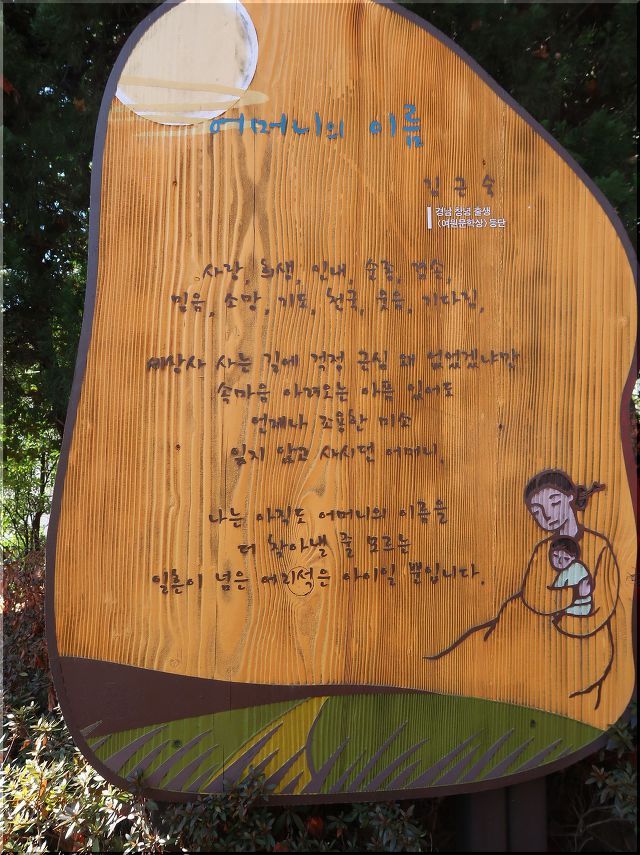 어머니의 이름
김근숙
경남 창녕 출생
<여원문학상> 등단
사랑, 희생, 인내, 순종, 겸손,
믿음, 소망, 기도, 천국, 웃음, 기다림,
세상사 사는 길에 걱정 근심 왜 없었겠냐만
속마음 아려오는 아픔 있어도
언제나 조용한 미소
잊지 않고 사시던 어머니.
나는 아직도 어머니의 이름을
더 찾아낼 줄 모르는
일흔이 넘은 어리석은 아이일 뿐입니다.